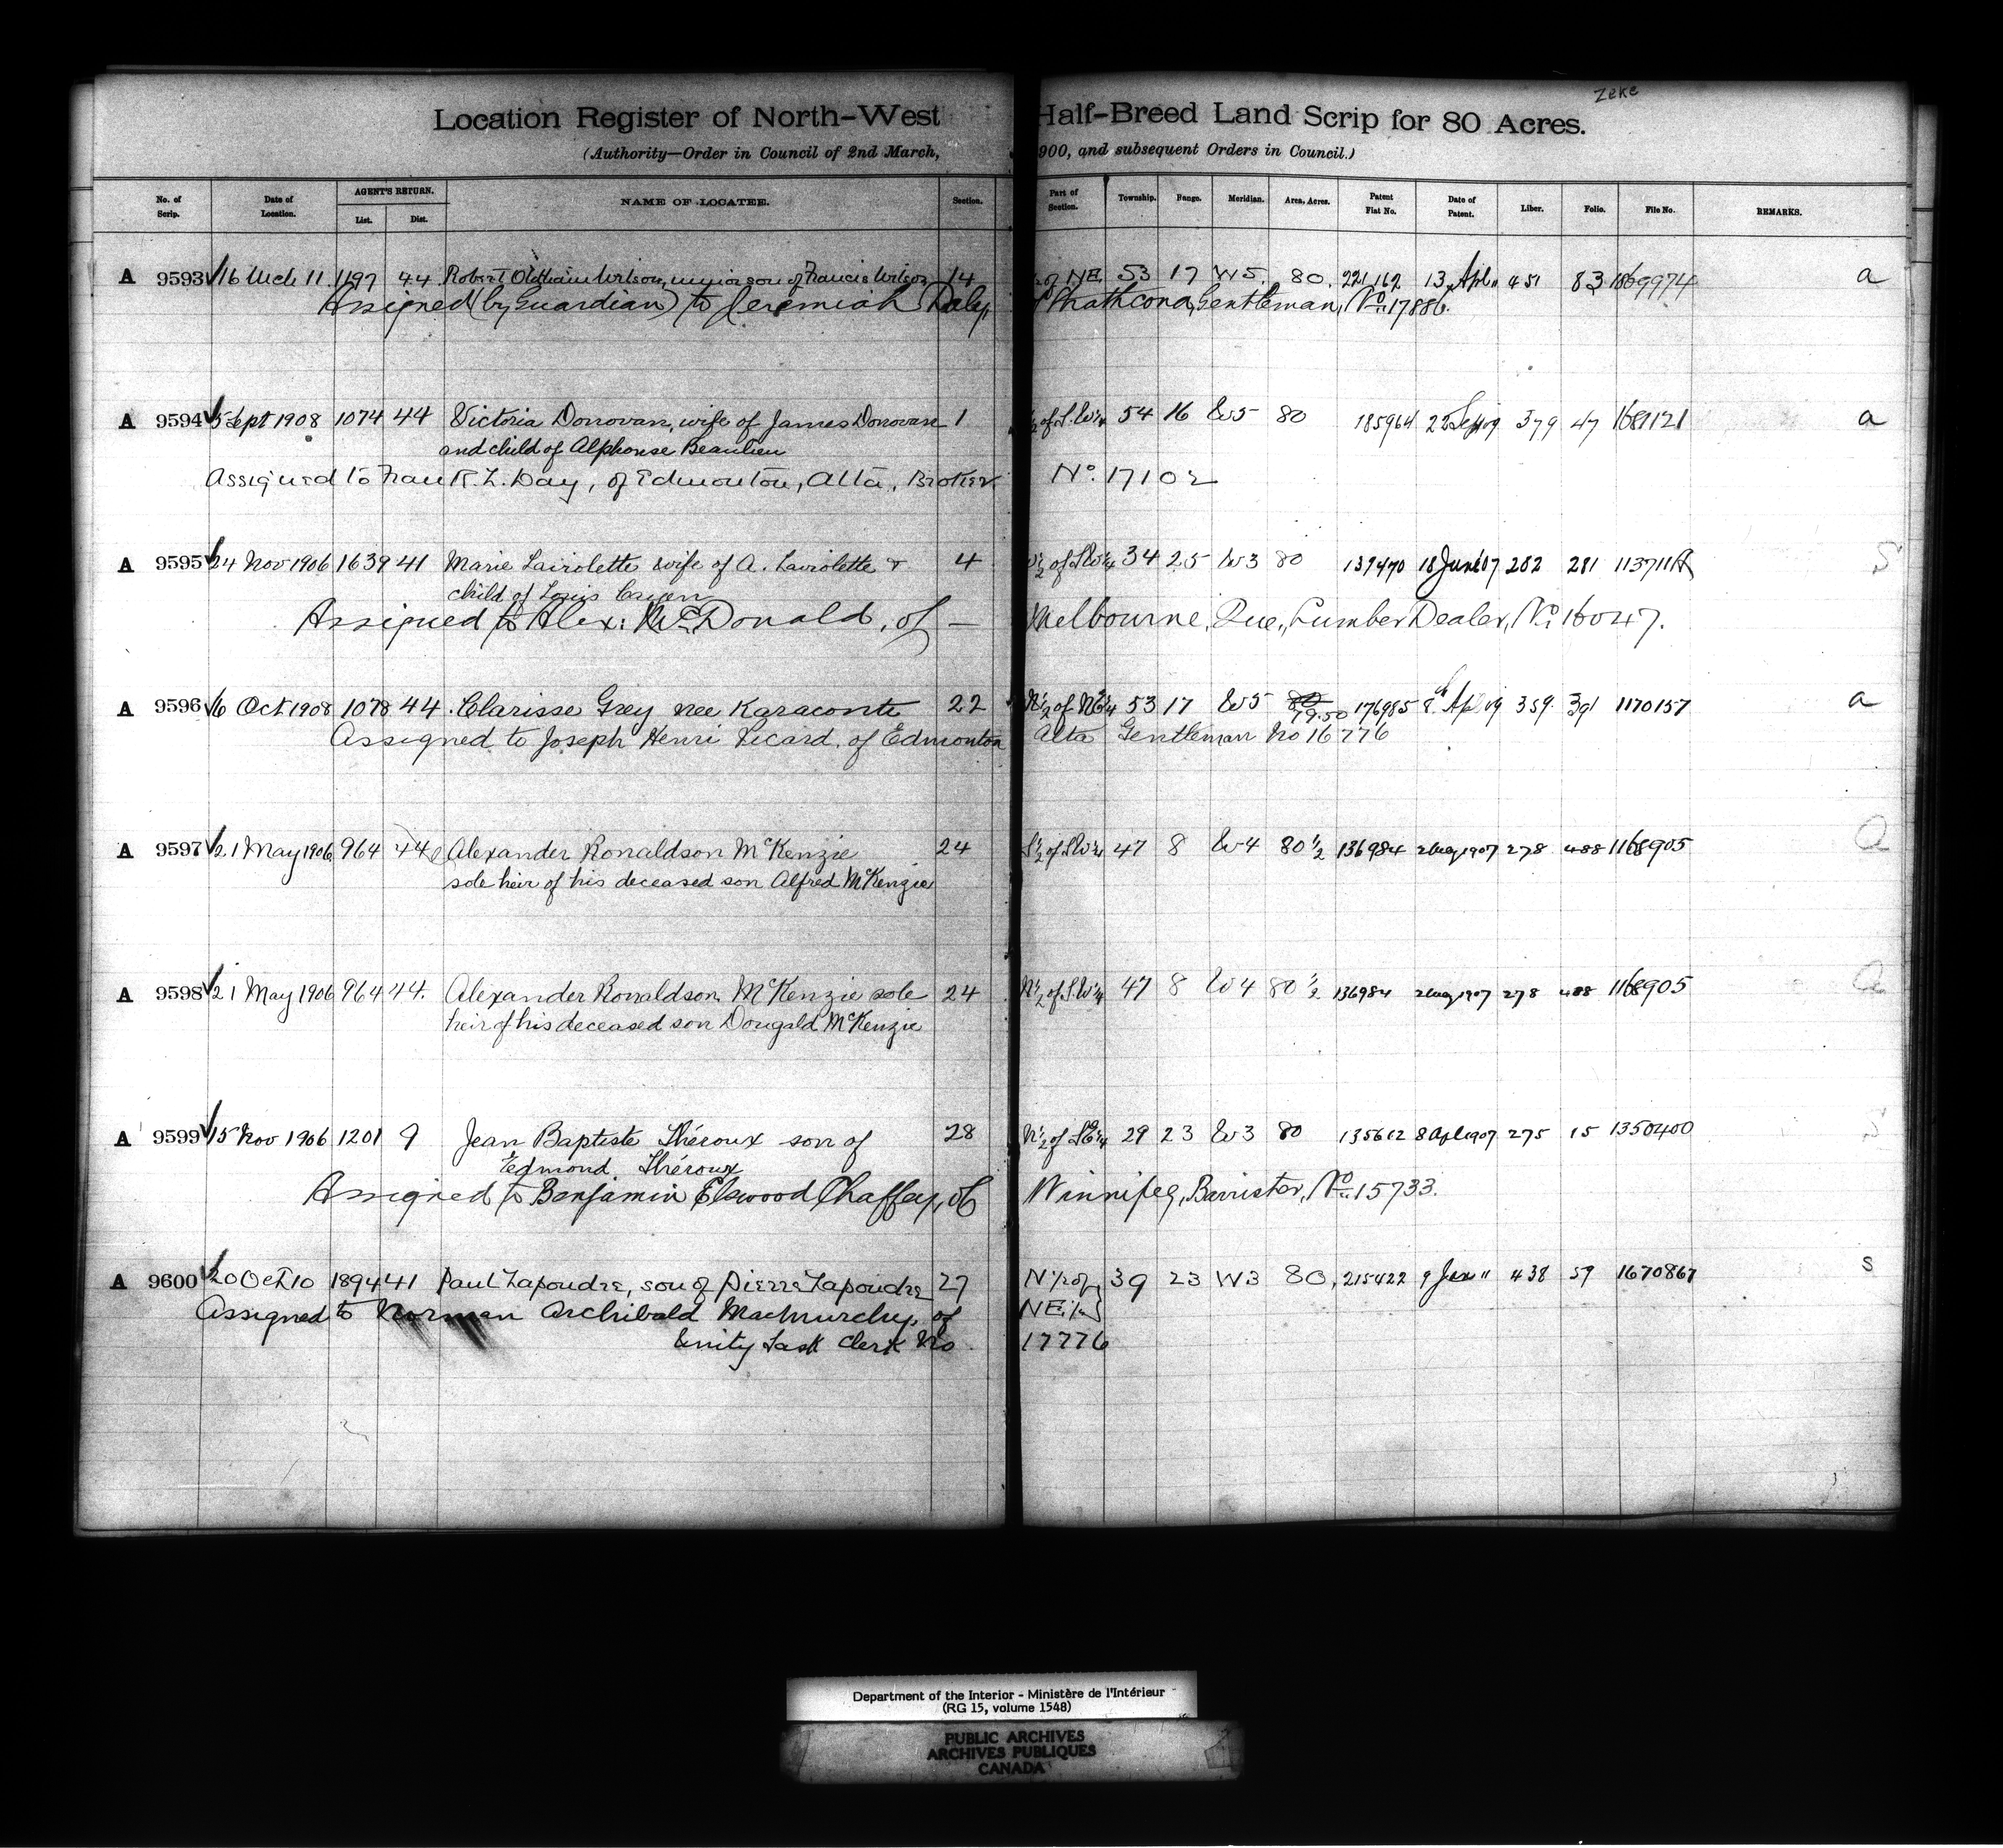 Zeke
Location Register of North-West Half-Breed Land Scrip for 80 Acres.
(Authority—Order in Council of 2nd March, 900, and subsequent Orders in Council.)
No. of Scrip. Date of Location. AGENT'S RETURN. List. Dist. NAME OF LOCATEE. Section. Part of Section. Township. Range. Meridian. Area, Acres. Patent Fiat No. Date of Patent. Liber. Folio. File No. REMARKS.
A 9593 16 Mch 11 1197 44 Robert Wilson, minor son of Francis Wilson 14 of NE 53 17 W5 80. 221162 13 Apl " 451 83 1869974 a
Assigned (by Guardian) to Jeremiah Daly, of Strathcona, Gentleman, No. 17886.
A 9594 5 Sept 1908 1074 44 Victoria Donovan, wife of James Donovan 1 ½ of S.W¼ 54 16 W5 80 185964 22 Sep 09 379 47 1681121 a
and child of Alphonse Beaulieu
Assigned to Frank R. L. Day, of Edmonton, Alta, Broker No. 17102
A 9595 24 Nov 1906 1639 41 Marie Laviolette wife of A. Laviolette & 4 ½ of S.W¼ 34 25 W3 80 139470 18 June 07 282 281 S
child of Louis
Assigned to Alex: McDonald, of — Melbourne, Que., Lumber Dealer, No. 16047.
A 9596 6 Oct 1908 1078 44 Clarisse Grey nee Karaconte 22 N½ of 53 17 W5 80 79.50 176985 8 Ap 09 359 391 1170157 a
Assigned to Joseph Henri Picard, of Edmonton Alta Gentleman No 16776
A 9597 21 May 1906 964 44 Alexander Ronaldson McKenzie 24 S½ of S.W¼ 47 8 W4 80½ 136984 2 Aug 1907 278 488 1168905 a
sole heir of his deceased son Alfred McKenzie
A 9598 21 May 1906 964 44. Alexander Ronaldson McKenzie sole 24 N½ of S.W¼ 47 8 W4 80½ 136984 2 Aug 1907 278 488 1168905 a
heir of his deceased son Dougald McKenzie
A 9599 15 Nov 1906 1201 9 Jean Baptiste Théroux son of 28 N½ of SE¼ 29 23 W3 80 135612 8 Apl 1907 275 15 1350400 S
Edmond Théroux
Assigned to Benjamin Elswood Chaffey, of Winnipeg, Barrister, No. 15733.
A 9600 20 Oct 10 1894 41 Paul Lapoudre, son of Pierre Lapoudre 27 N½ of 39 23 W3 80, 215422 9 Jan " 438 59 1670867 s
Assigned to Norman Archibald Machmurchy, of NE¼
Unity Sask Clerk No 17776
Department of the Interior - Ministère de l'Intérieur
(RG 15, volume 1548)
PUBLIC ARCHIVES
ARCHIVES PUBLIQUES
CANADA